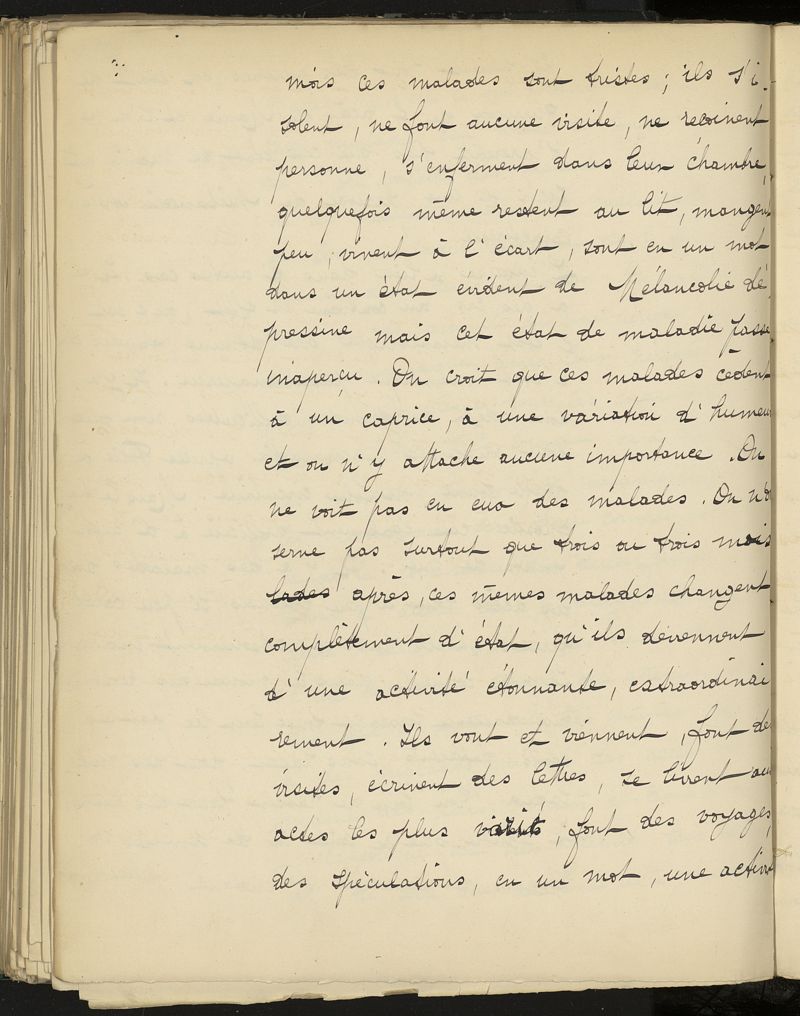 mois ces malades sont tristes ; ils s'i-
solent, ne font aucune visite, ne reçoivent
personne, s'enferment dans leur chambre,
quelquefois même restent au lit, mangent
peu, vivent à l'écart, sont en un mot
dans un état évident de Mélancolie dé
pressive mais cet état de maladie passe
inaperçu. On croit que ces malades cèdent
à un caprice, à une variation d'humeur
et on n'y attache aucune importance. On
ne voit pas en eux des malades. On n'ob
serve pas surtout que trois ou trois mois
lades après, ces mêmes malades changent
complètement d'état, qu'ils deviennent
d'une activité étonnante, extraordinai
rement. Ils vont et viennent, font des
visites, écrivent des lettres, se livrent aux
actes les plus variés, font des voyages,
des spéculations, en un mot, une activi